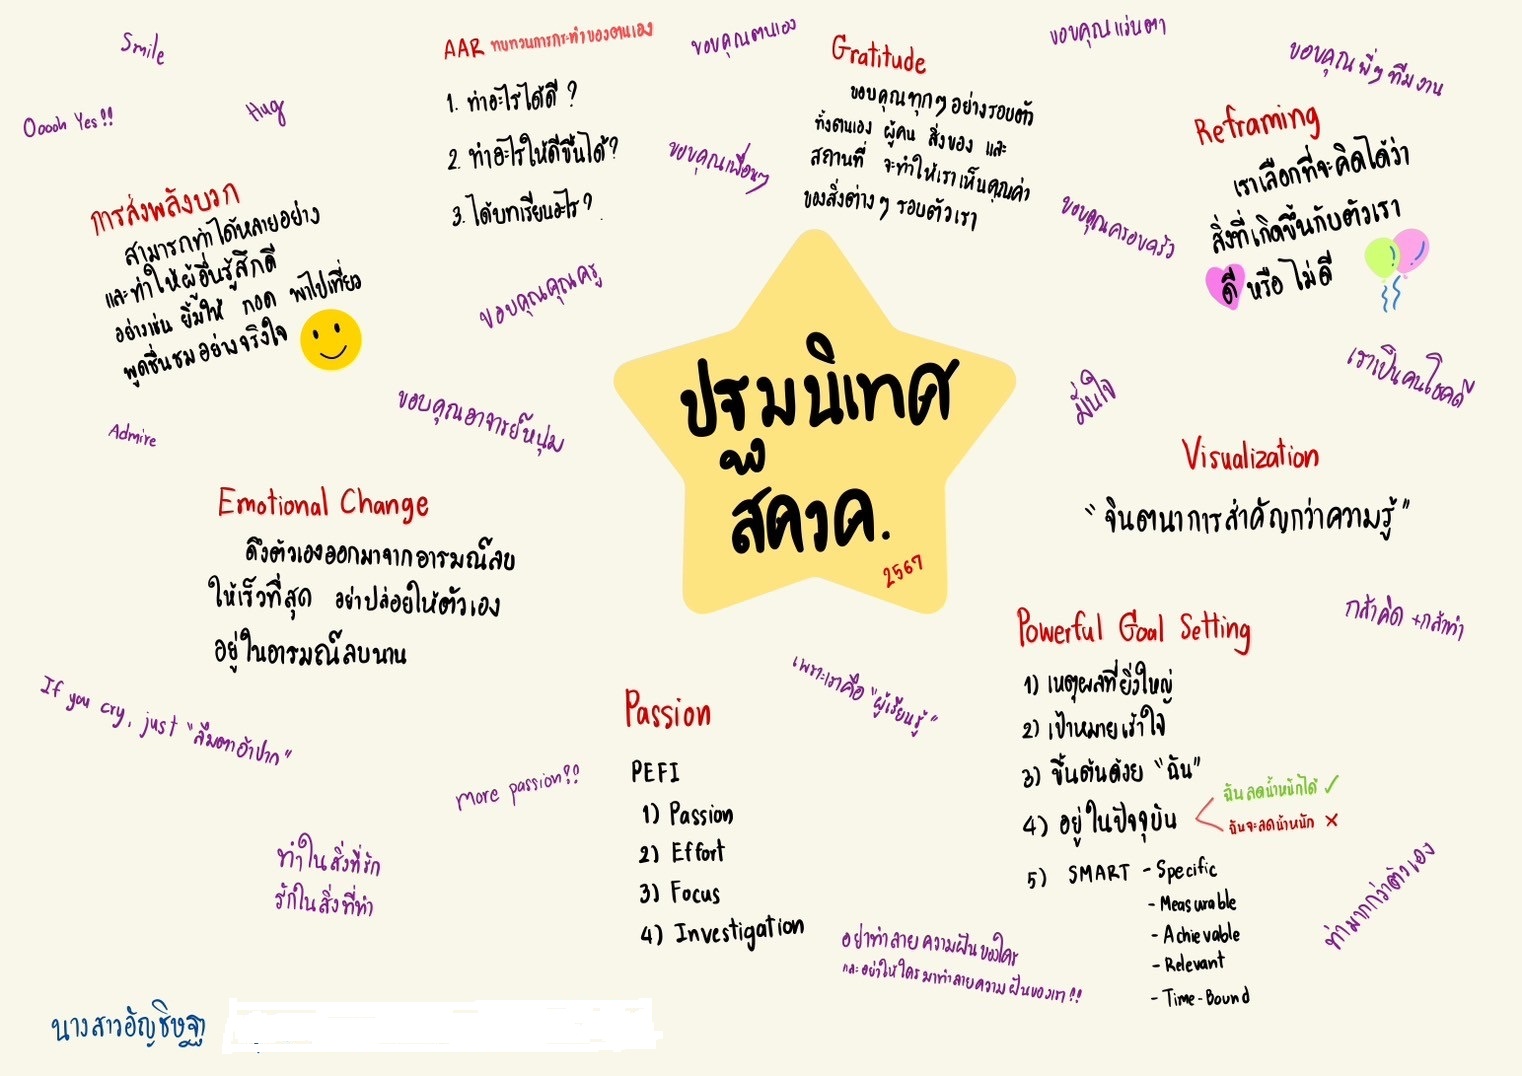 Smile
Ooooh Yes!!
Hug
การส่งพลังบวก
สามารถทำได้หลายอย่าง
และทำให้ผู้อื่นรู้สึกดี
อย่างเช่น ยิ้มให้ กอด พาไปเที่ยว
พูดชื่นชมอย่างจริงใจ
Admire
AAR ทบทวนการกระทำของตนเอง
1. ทำอะไรได้ดี ?
2. ทำอะไรให้ดีขึ้นได้?
3. ได้บทเรียนอะไร?
ขอบคุณตนเอง
ขอบคุณเพื่อนๆ
ขอบคุณคุณครู
ขอบคุณอาจารย์หนุ่ม
Gratitude
ขอบคุณทุกๆอย่างรอบตัว
ทั้งตนเอง ผู้คน สิ่งของ และ
สถานที่ จะทำให้เราเห็นคุณค่า
ของสิ่งต่างๆ รอบตัวเรา
ขอบคุณแว่นตา
ขอบคุณพี่ๆทีมงาน
ขอบคุณครอบครัว
Reframing
เราเลือกที่จะคิดได้ว่า
สิ่งที่เกิดขึ้นกับตัวเรา
ดี หรือ ไม่ดี
เราเป็นคนโชคดี
มั่นใจ
ปฐมนิเทศ
สควค.
2567
Visualization
"จินตนาการสำคัญกว่าความรู้"
กล้าคิด +กล้าทำ
Emotional Change
ดึงตัวเองออกมาจากอารมณ์ลบ
ให้เร็วที่สุด อย่าปล่อยให้ตัวเอง
อยู่ในอารมณ์ลบนาน
If you cry, just "ลืมตาอ้าปาก"
more passion!!
ทำในสิ่งที่รัก
รักในสิ่งที่ทำ
Passion
PEFI
1) Passion
2) Effort
3) Focus
4) Investigation
เพราะเราคือ "ผู้เรียนรู้"
Powerful Goal Setting
1) เหตุผลที่ยิ่งใหญ่
2) เป้าหมายเร้าใจ
3) ขึ้นต้นด้วย "ฉัน"
4) อยู่ในปัจจุบัน
ฉันลดน้ำหนักได้ ✓
ฉันจะลดน้ำหนัก ✗
5) SMART - Specific
- Measurable
- Achievable
- Relevant
- Time-Bound
ทำมากกว่าตัวเอง
อย่าทำลายความฝันของใคร
และอย่าให้ใครมาทำลายความฝันของเรา!!
นางสาวอัญชิษฐา